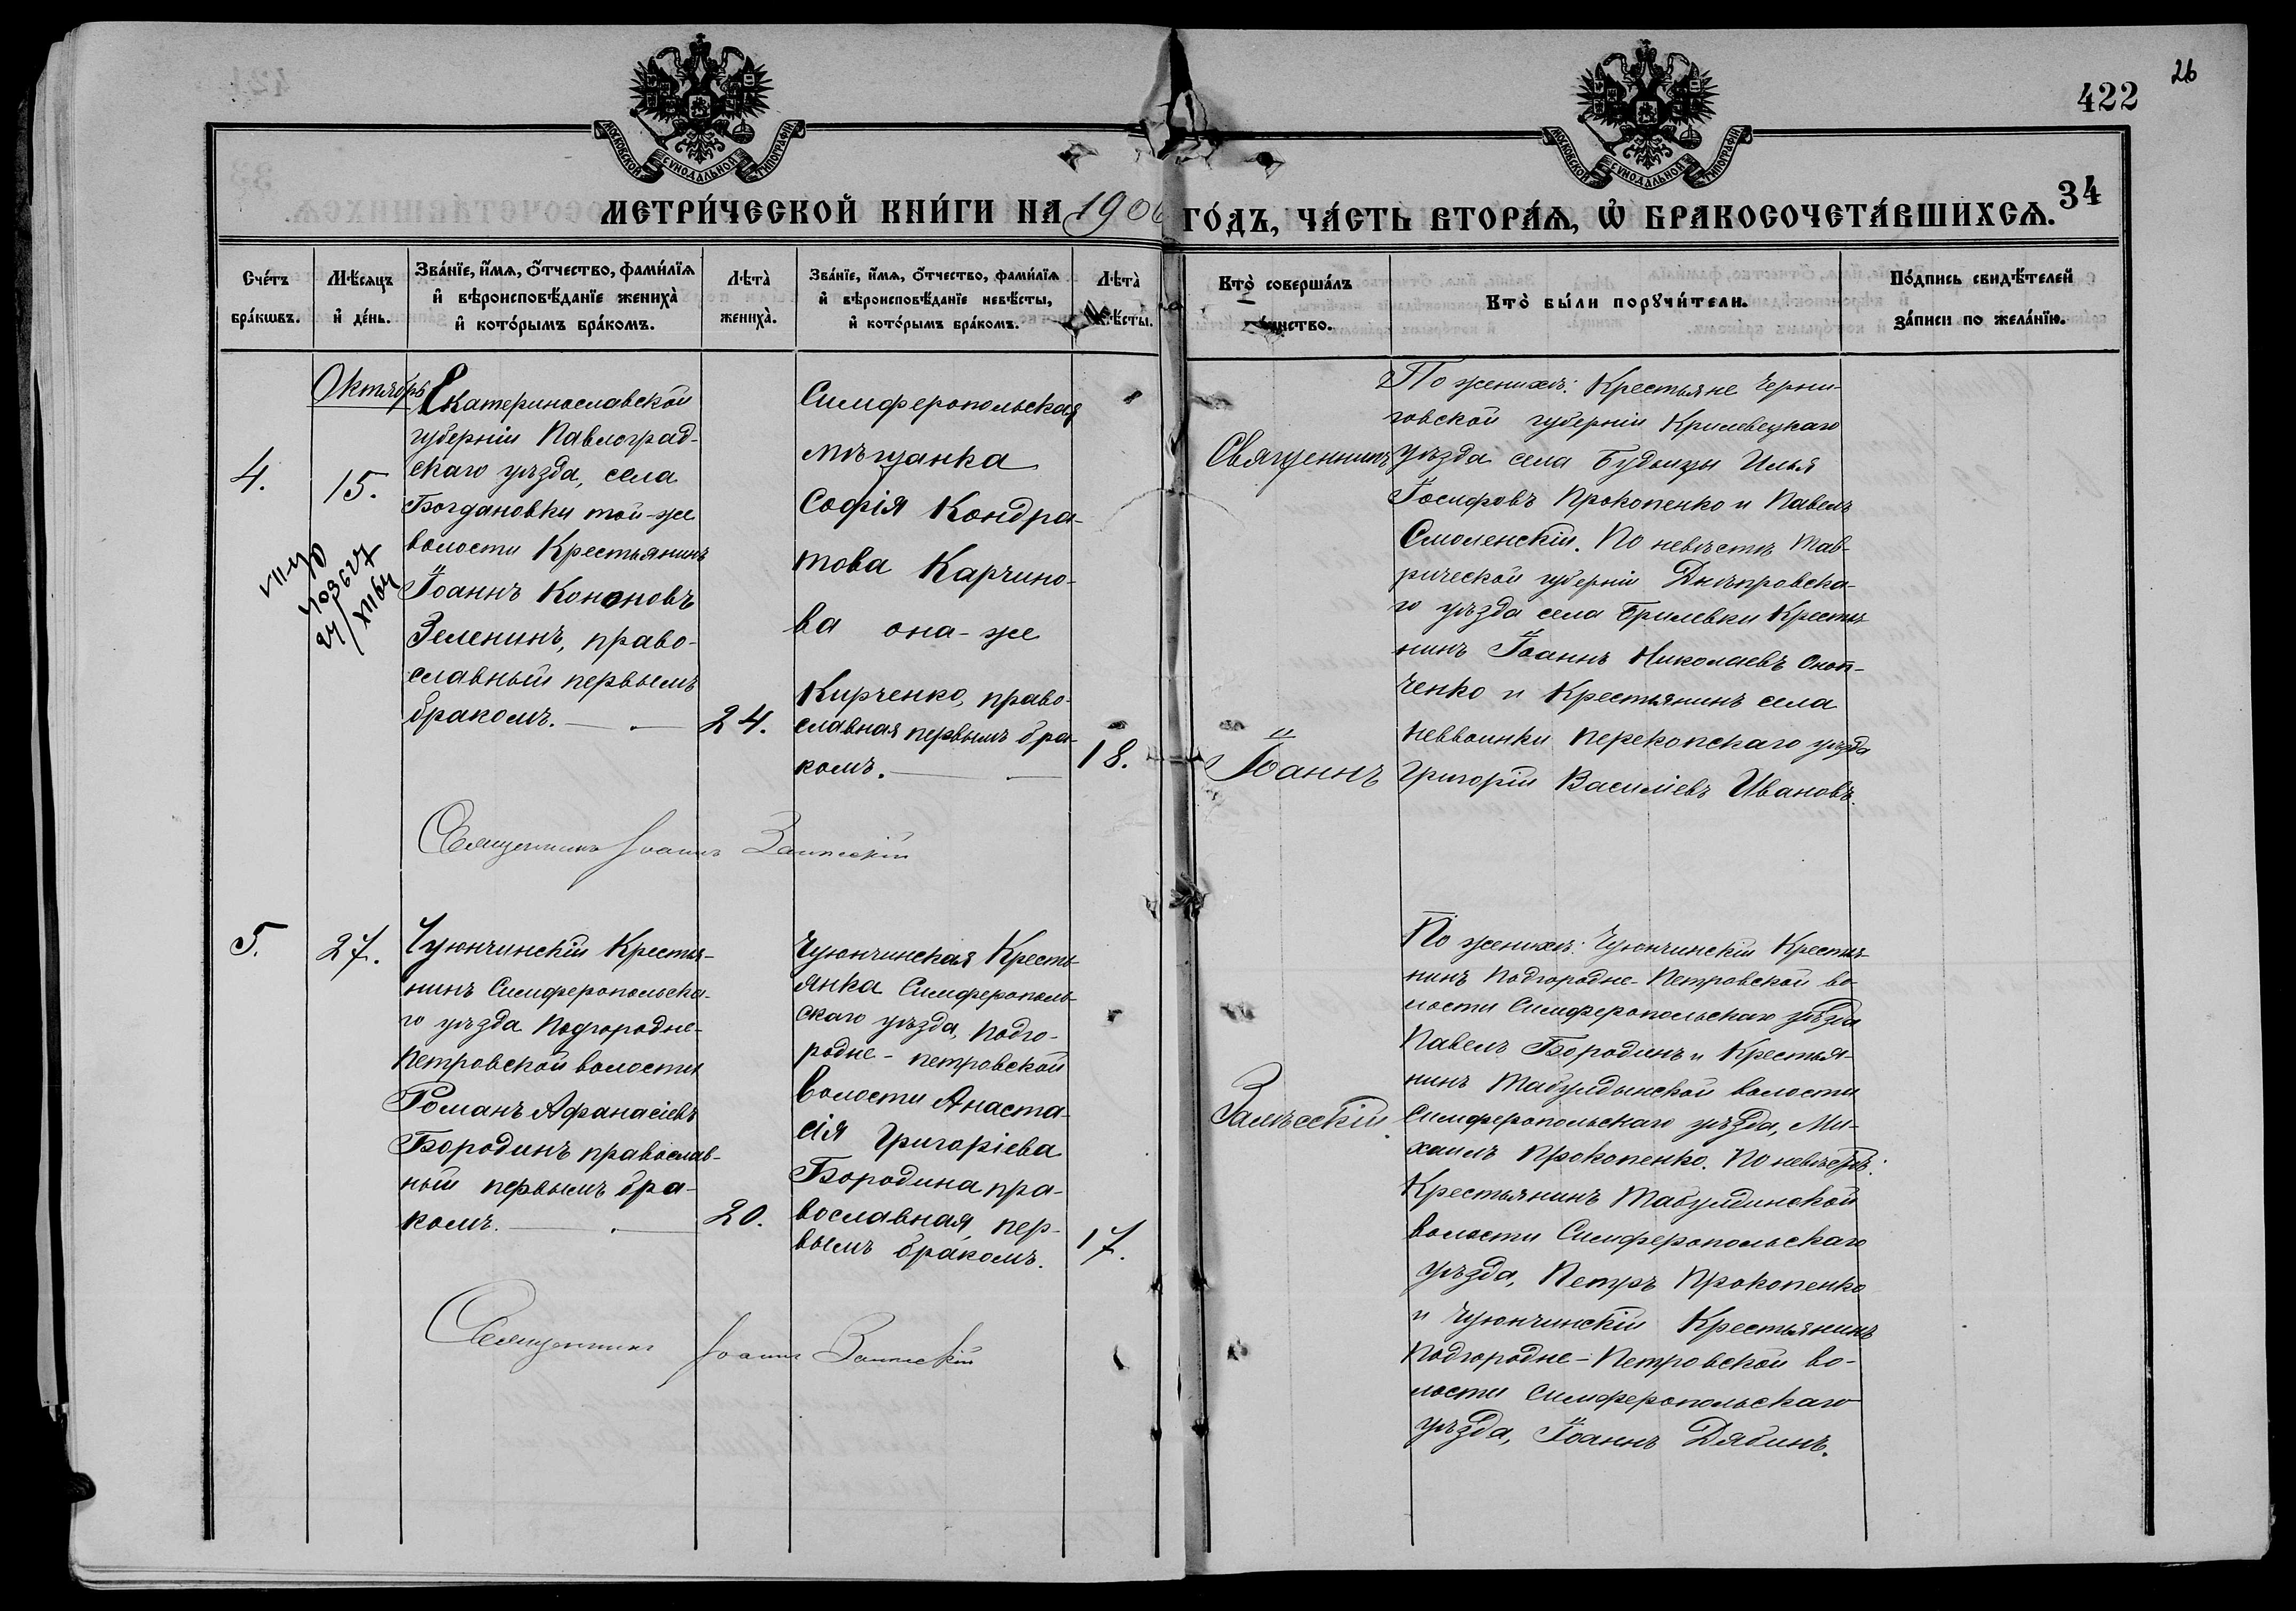 422
26
34
МОСКОВСКОЙ СУНОДАЛЬНОЙ ТИПОГРАФІИ
МОСКОВСКОЙ СУНОДАЛЬНОЙ ТИПОГРАФІИ
МЕТРИ́ЧЕСКОЙ КНИ́ГИ НА 1906 ГО́ДЪ, ЧА́СТЬ ВТОРА́Ѧ, Ѡ҆ БРАКОСОЧЕТА́ВШИХСѦ.
Сче́тъ
бра́кѡвъ.
Мѣ́сѧцъ
и҆ де́нь.
Зва́нїе, и҆́мѧ, ѻ҆́тчество, фами́лїѧ
и҆ вѣроисповѣ́данїе жениха̀
и҆ кото́рымъ бра́комъ.
Лѣта̀
жениха̀.
Зва́нїе, и҆́мѧ, ѻ҆́тчество, фами́лїѧ
и҆ вѣроисповѣ́данїе невѣ́сты,
и҆ кото́рымъ бра́комъ.
Лѣта̀
невѣ́сты.
Кто̀ соверша́лъ
та́инство.
Кто̀ бы́ли порꙋчи́тели.
По́дпись свидѣ́телей
за́писи по жела́нїю.
Октябрь
4.
15.
Екатеринославской
губерніи Павлоград-
скаго уѣзда, села
Богдановки той-же
волости Крестьянинъ
Іоаннъ Кононовъ
Зеленинъ, право-
славный первымъ
бракомъ.
24.
Симферопольская
мѣщанка
Софія Кондра-
това Карчино-
ва она-же
Кирченко, право-
славная первымъ бра-
комъ.
18.
Священникъ
Іоаннъ
Залѣсскій.
По женихѣ: Крестьяне Черни-
говской губерніи
уѣзда села Будищи Илья
Іосифовъ Прокопенко и Павелъ
Смоленскій. По невѣстѣ Тав-
рической губерніи Днѣпровска-
го уѣзда села Брилевки Крестья
нинъ Іоаннъ Николаевъ
ченко и Крестьянинъ села
Перекопскаго уѣзда
Григорій Василіевъ Ивановъ.
Священникъ Іоаннъ Залѣсскій
5.
27.
Чуюнчинскій Крестья-
нинъ Симферопольска-
го уѣзда Подгородне-
Петровской волости
Романъ Афанасіевъ
Бородинъ православ-
ный первымъ бра-
комъ.
20.
Чуюнчинская Кресть-
янка Симферополь-
скаго уѣзда, Подго-
родне-петровской
волости Анаста-
сія Григоріева
Бородина пра-
вославная, пер-
вымъ бракомъ.
17.
По женихѣ: Чуюнчинскій Крестья-
нинъ Подгородне-Петровской во-
лости Симферопольскаго уѣзда
Павелъ Бородинъ и Крестья-
нинъ Табулдынской волости
Симферопольскаго уѣзда, Ми-
хаилъ Прокопенко. По невѣстѣ:
Крестьянинъ Табулдинской
волости Симферопольскаго
уѣзда, Петръ Прокопенко
и Чуюнчинскій Крестьянинъ
Подгородне-Петровской во-
лости Симферопольскаго
уѣзда, Іоаннъ Дябинъ.
Священникъ Іоаннъ Залѣсскій